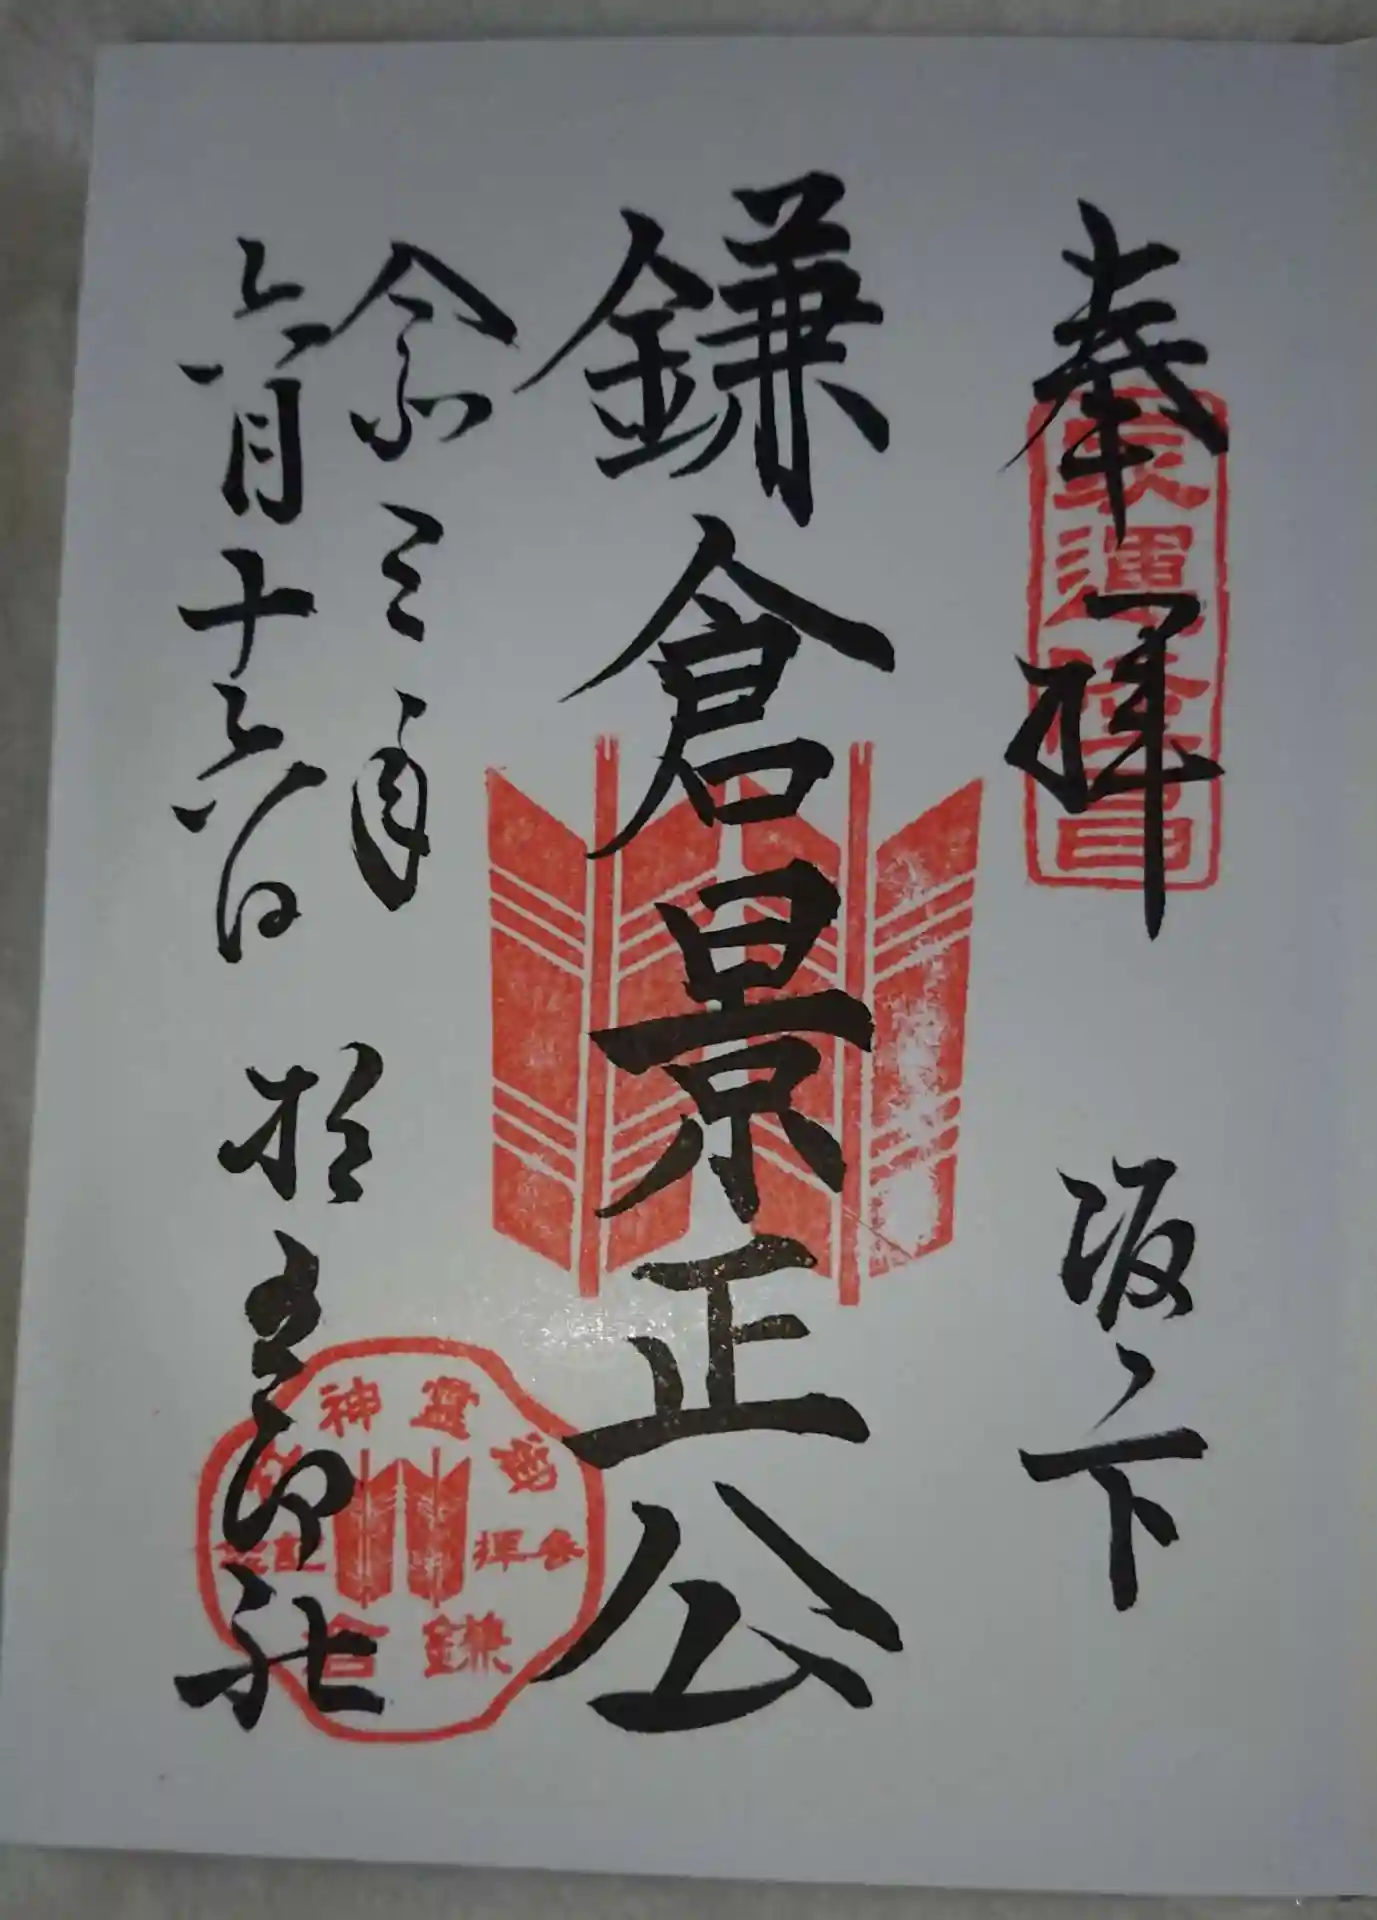 奉拝　坂ノ下
家運隆昌
鎌倉景正公
令和三年
六月十六日　於 御霊社
御霊神社
参拝記念
鎌倉